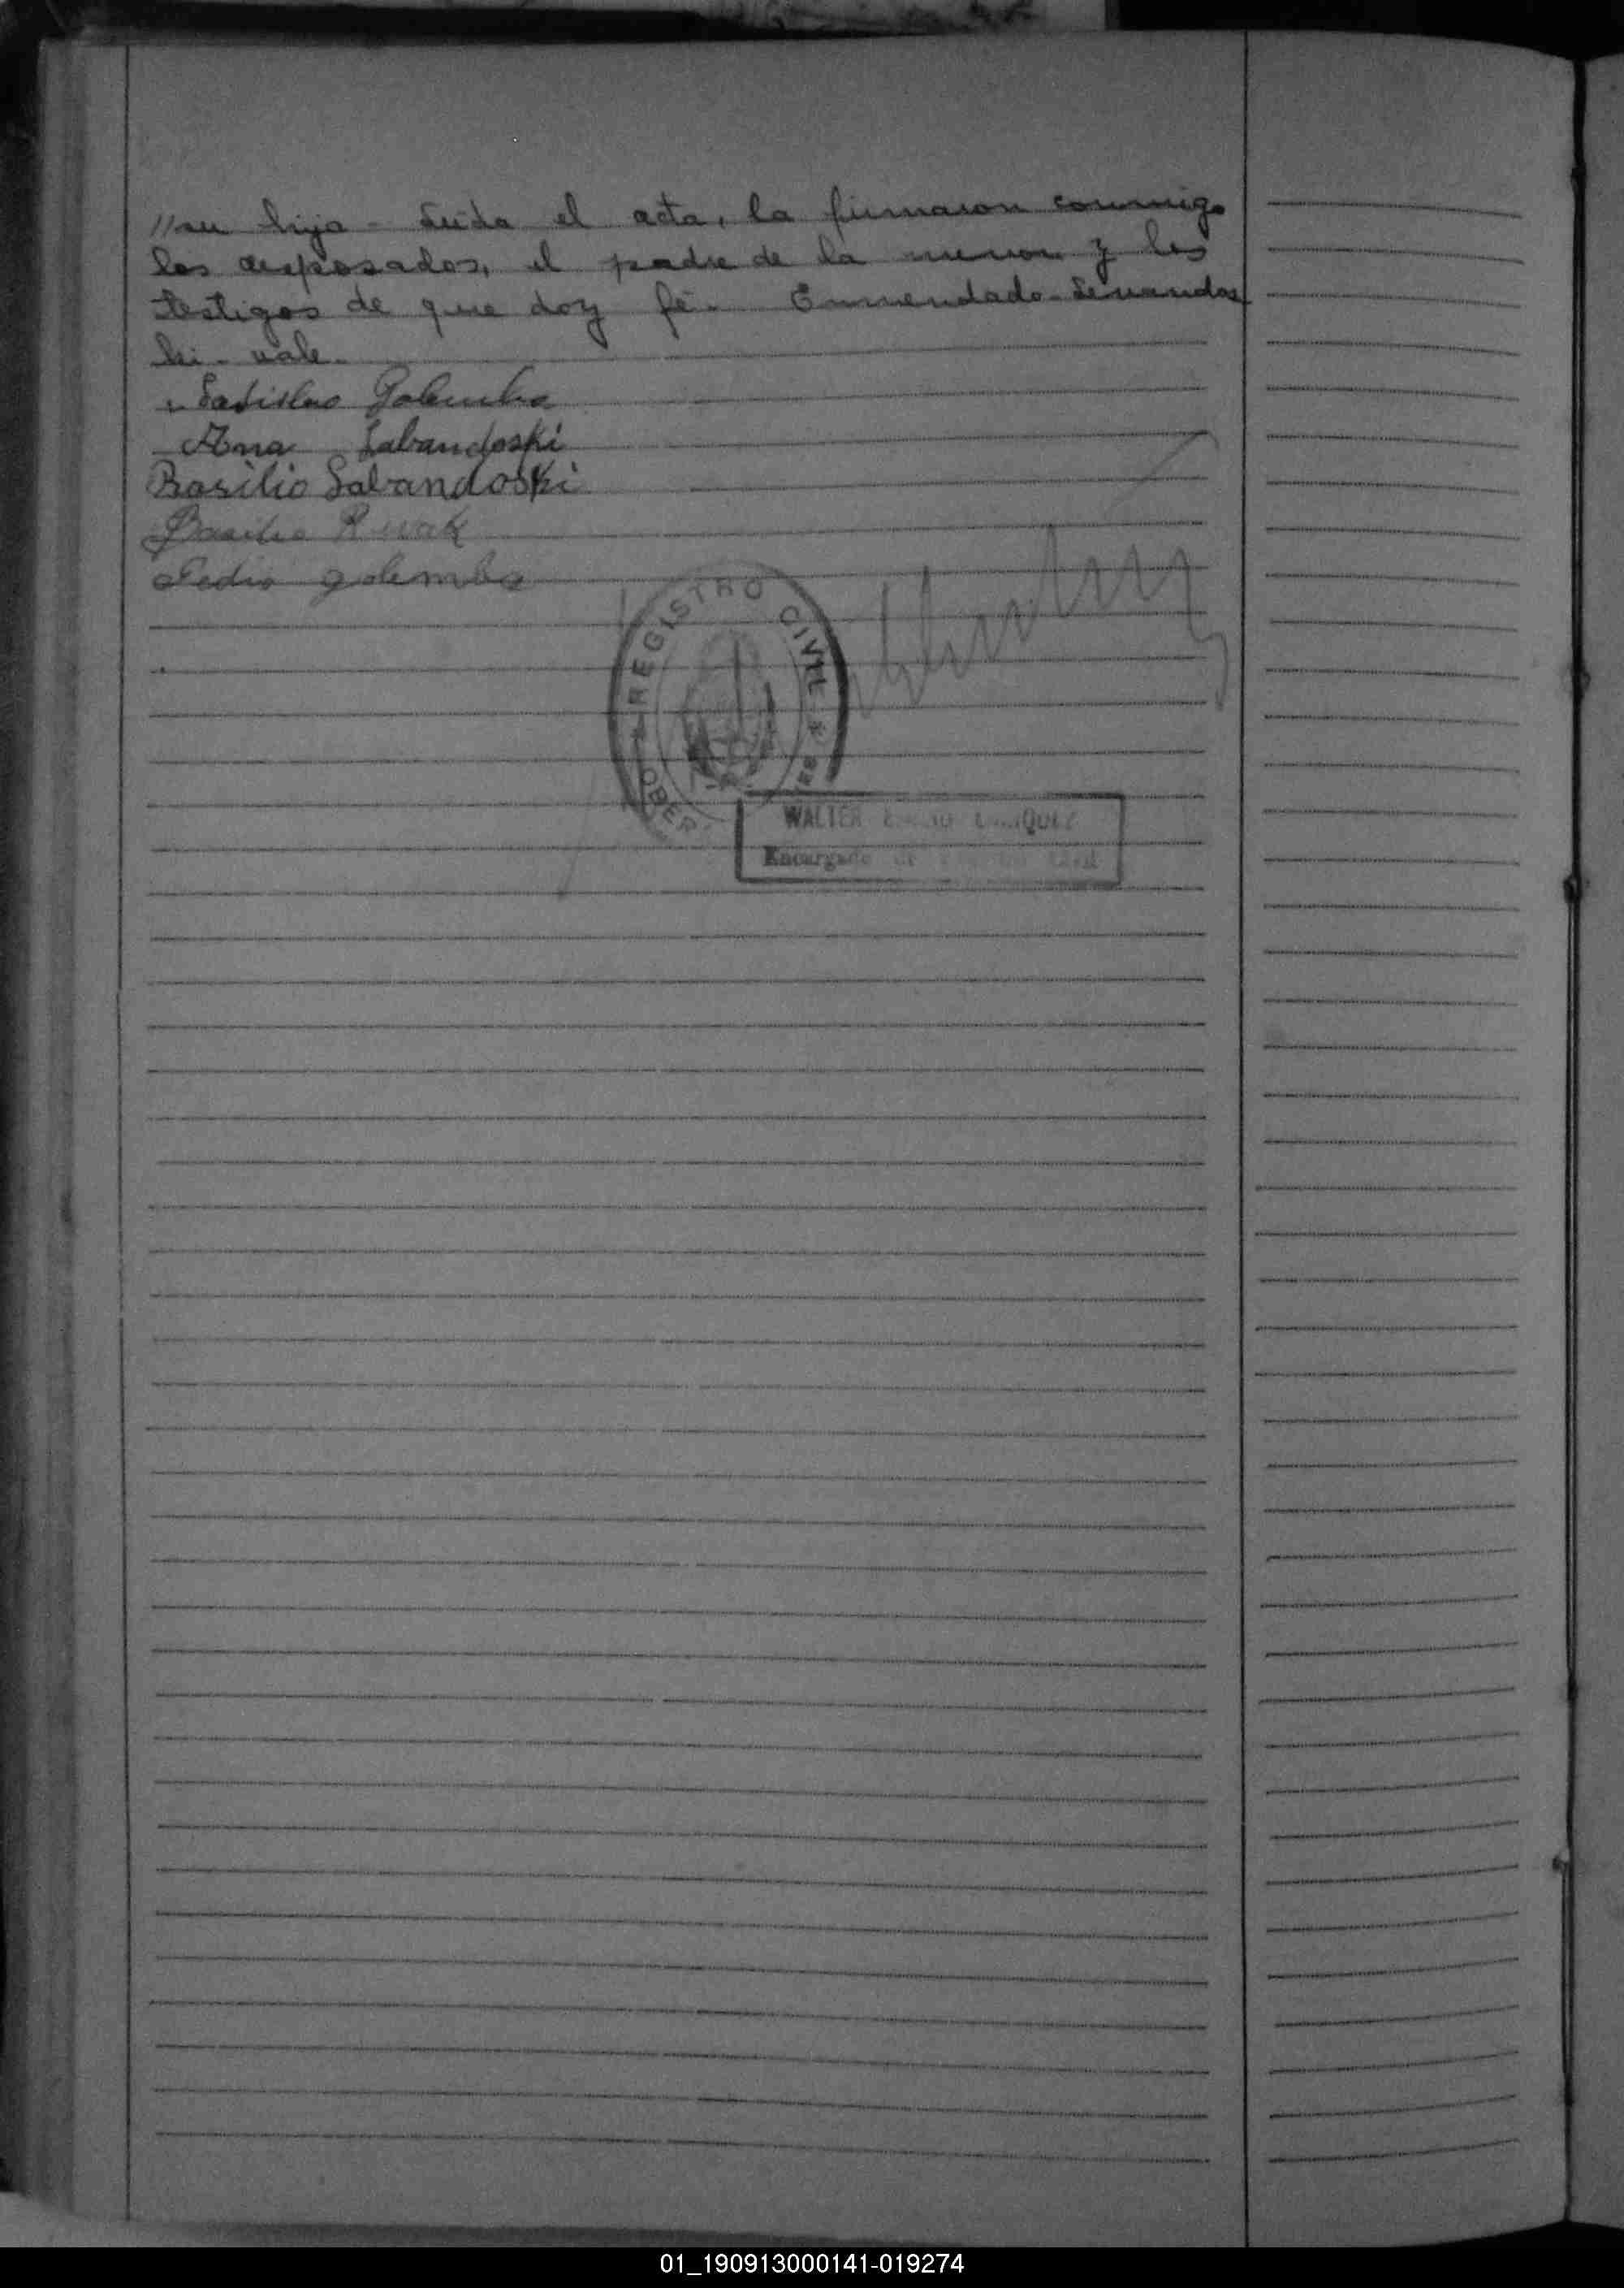 //su hija - Leida el acta, la firmaron conmigo
los desposados, el padre de la menor y los
testigos de que doy fé. Enmendado - Levandos
ki - vale -
Ladislao Golemba
Ana Labandoski
Basilio Labandoski
Basilio
Pedro golemba
REGISTRO CIVIL
OBERA
WALTER
Encargado
01_190913000141-019274